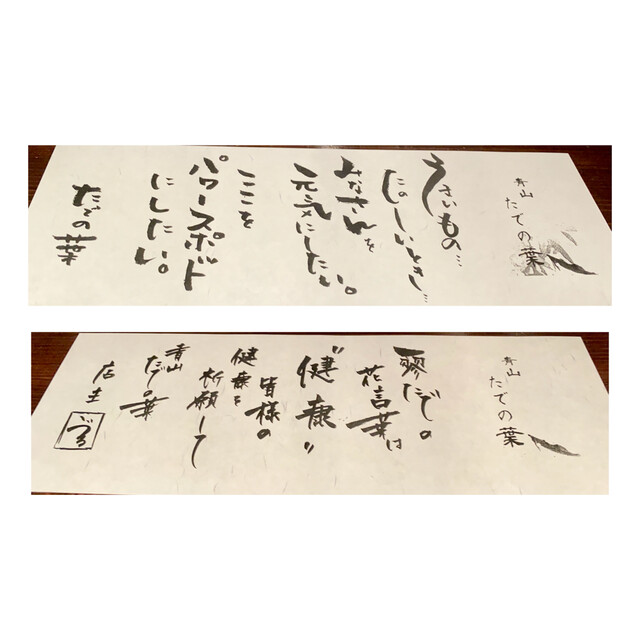 青山
たでの葉
うまいもの…
たのしいとき…
みなさんを
元気にしたい。
ここを
パワースポット
にしたい。
たでの葉
青山
たでの葉
蓼たで。の
花言葉は
"健康"
皆様の
健康を
祈願して
青山
たでの葉
店主